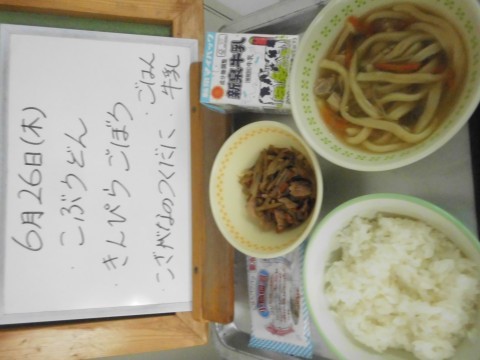 6月26日(木)
・こぶうどん
・きんぴらごぼう
・こざかなのつくだに
・ごはん
・牛乳
新泉牛乳